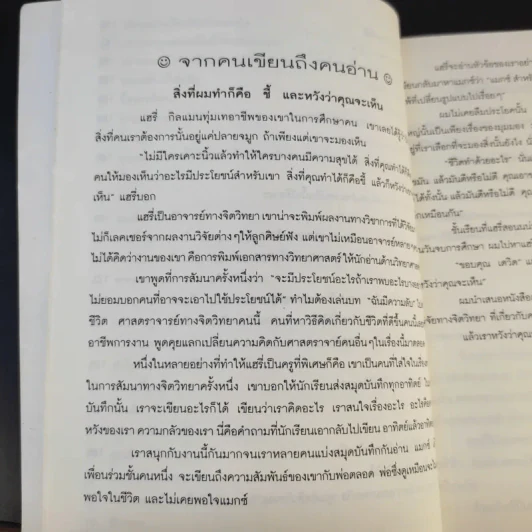 ☺ จากคนเขียนถึงคนอ่าน ☺
สิ่งที่ผมทำก็คือ ชี้ และหวังว่าคุณจะเห็น
แฮรี่ กิลแมนทุ่มเทอาชีพของเขาในการศึกษาคน เขาเคยได้
สิ่งที่คนเราต้องการนั้นอยู่แค่ปลายจมูก ถ้าเพียงแต่เขาจะมองเห็น
"ไม่มีใครเคาะนิ้วแล้วทำให้ใครบางคนมีความสุขได้ สิ่งที่คุณทำได้
คนให้มองเห็นว่าอะไรมีประโยชน์สำหรับเขา สิ่งที่คุณทำได้ก็คือชี้ แล้วก็หวังว่า
เห็น" แฮรี่บอก
แฮรี่เป็นอาจารย์ทางจิตวิทยา เขาน่าจะพิมพ์ผลงานทางวิชาการที่ได้วิจัย
ไม่ก็เลคเชอร์จากผลงานวิจัยต่างๆให้ลูกศิษย์ฟัง แต่เขาไม่เหมือนอาจารย์หลาย
ไม่ได้คิดว่างานของเขา คือการพิมพ์เอกสารทางวิทยาศาสตร์ ให้นักอ่านด้านวิทยาศาสตร์
เขาพูดที่การสัมนาครั้งหนึ่งว่า "จะมีประโยชน์อะไรถ้าเราพบอะไรบาง
ไม่ยอมบอกคนที่อาจจะเอาไปใช้ประโยชน์ได้" ทำไมต้องเล่นบท "ฉันมีความลับ"
ชีวิต ศาสตราจารย์ทางจิตวิทยาคนนี้ คนที่หาวิธีคิดเกี่ยวกับชีวิตที่ดีขึ้น
อาชีพการงาน พูดคุยแลกเปลี่ยนความคิดกับศาสตราจารย์คนอื่นๆในเรื่องนี้มาตลอด
หนึ่งในหลายอย่างที่ทำให้แฮรี่เป็นครูที่พิเศษก็คือ เขาเป็นคนที่ใส่ใจในเรื่อง
ในการสัมนาทางจิตวิทยาครั้งหนึ่ง เขาบอกให้นักเรียนส่งสมุดบันทึกทุกอาทิตย์ ใน
บันทึกนั้น เราจะเขียนอะไรก็ได้ เขียนว่าเราคิดอะไร เราสนใจเรื่องอะไร อะไรคือ
หวังของเรา ความกลัวของเรา นี่คือคำถามที่นักเรียนเอากลับไปเขียน อาทิตย์แล้วอาทิตย์
เราสนุกกับงานนี้กันมากจนเราหลายคนแบ่งสมุดบันทึกกันอ่าน แมกซ์
เพื่อนร่วมชั้นคนหนึ่ง จะเขียนถึงความสัมพันธ์ของเขากับพ่อตลอด พ่อซึ่งดูเหมือนจะไม่
พอใจในชีวิต และไม่เคยพอใจแมกซ์
แฮรี่จะอ่านหัวข้อของเราอย่าง
กลับมาหาแมกซ์ว่า "แมกซ์ สำหรับ
ที่เปลี่ยนรูปแบบไปเรื่อยๆ"
ผมไม่เคยลืมประโยคนั้น
นั้นเป็นเพียงเรื่องของมุมมอง
อยู่ที่เราเลือกที่จะมองสิ่งนั้นยังไง
"ชีวิตทำด้วยอะไร"
แล้วมันดีหรือไม่ดี คุณอาจ
แล้วมันดีหรือไม่ดี คุณ
เหมือนกัน"
ชั้นเรียนที่แฮรี่สอน
จบการศึกษา ผมไปหาแฮรี่
"ขอบคุณ เดวิด"
และหวังว่าคุณจะเห็น"
ผมนำเสนอหนังสือ
ทางจิตวิทยา ที่เกี่ยวกับ
แล้วเราหวังว่าคุณ